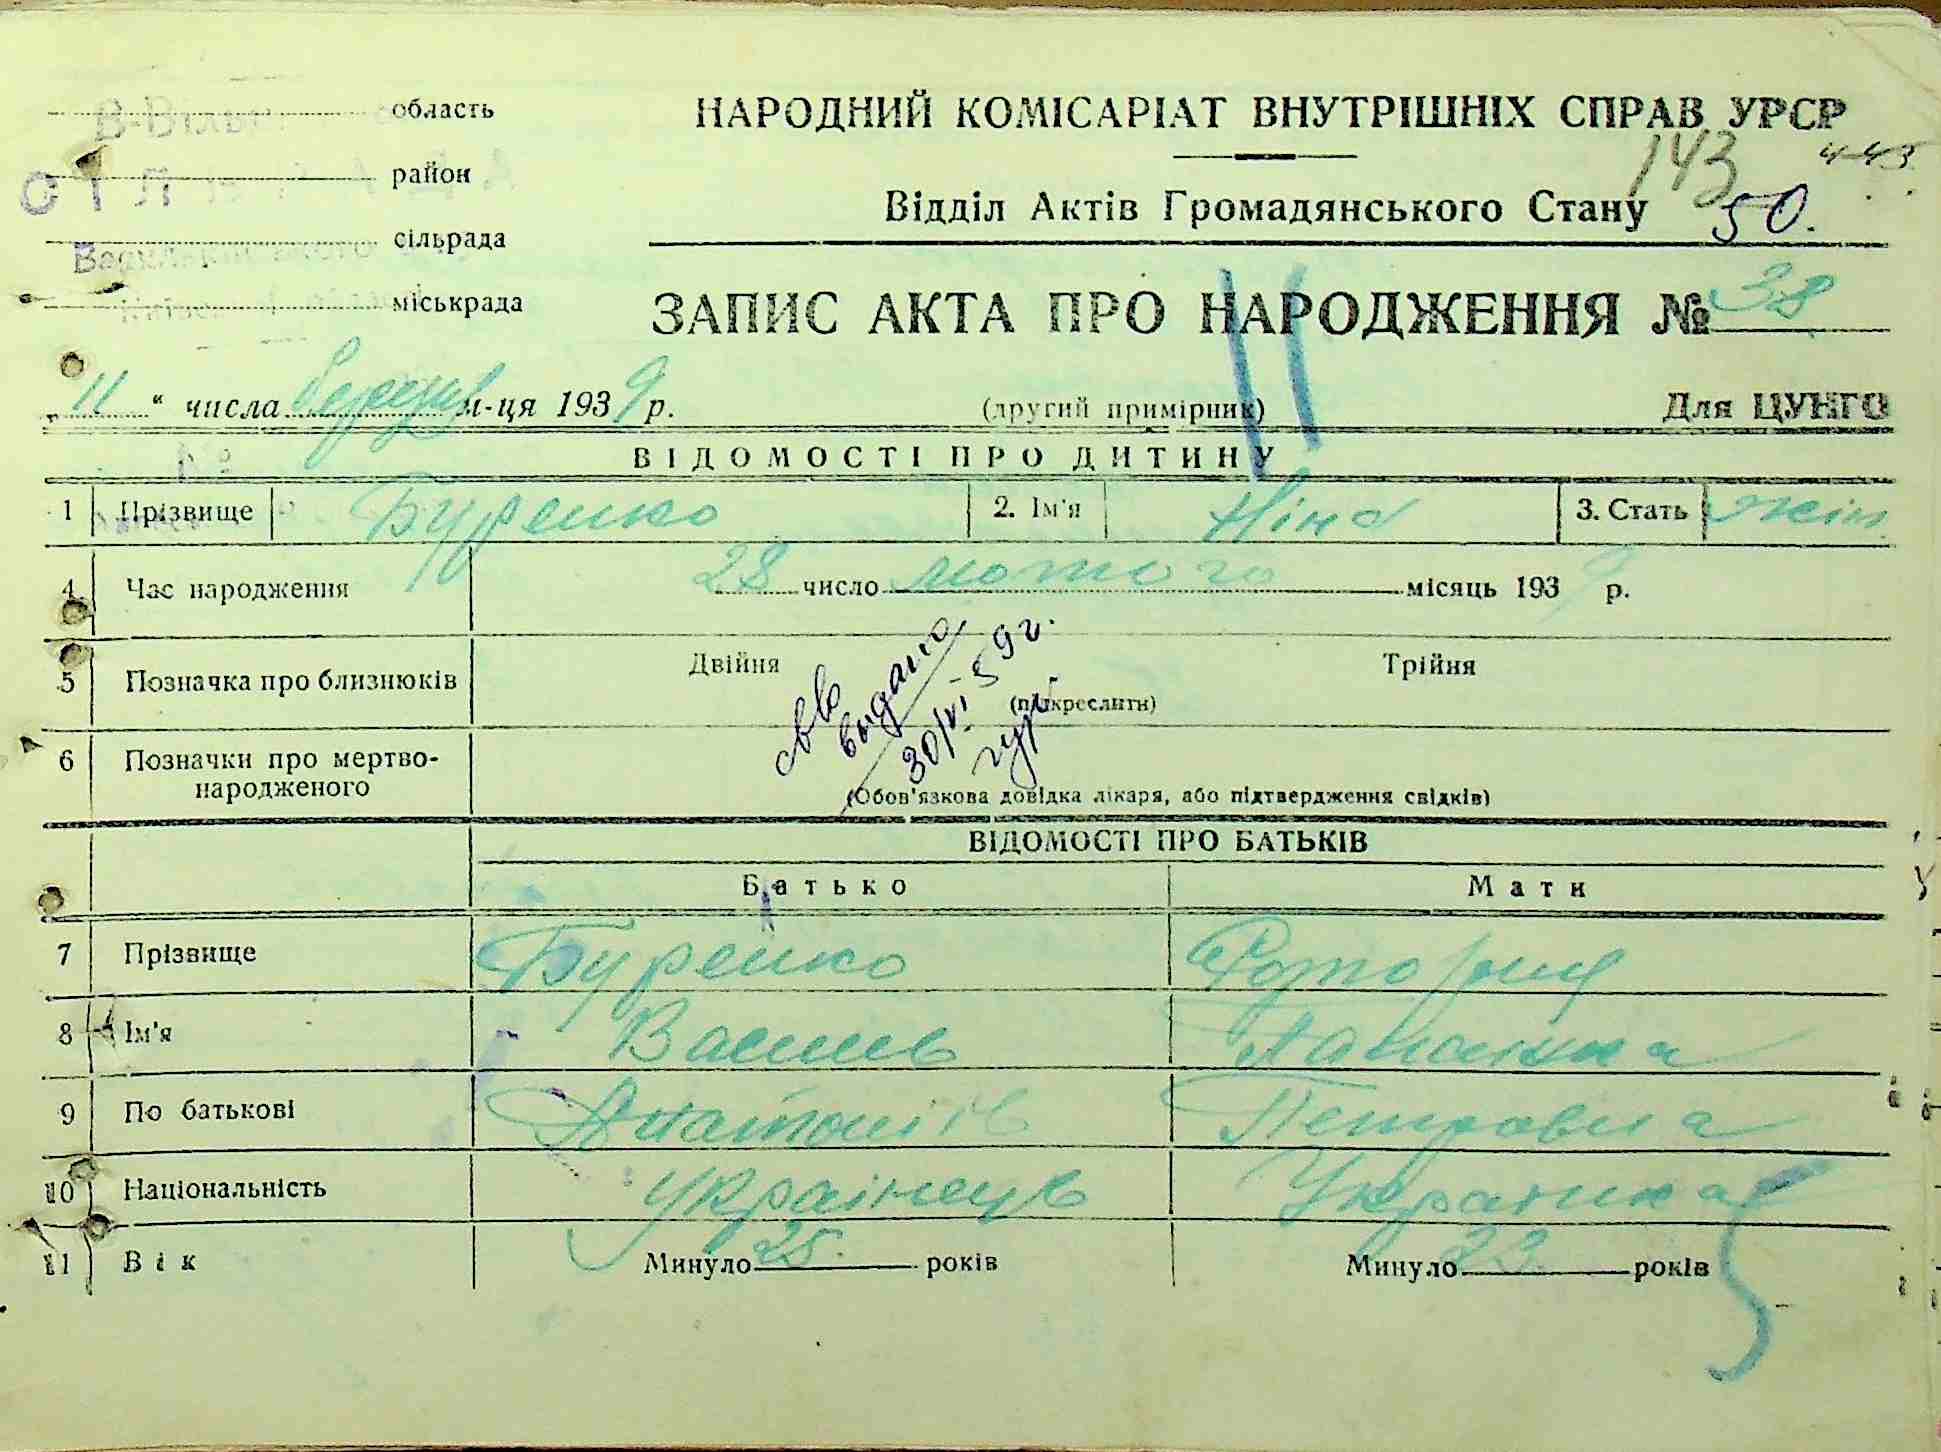 область
НАРОДНИЙ КОМІСАРІАТ ВНУТРІШНІХ СПРАВ УРСР
143
443
район
Відділ Актів Громадянського Стану
50.
сільрада
міськрада
ЗАПИС АКТА ПРО НАРОДЖЕННЯ № 38
„ 11 “ числа березня м-ця 1939 р. (другий примірник) Для ЦУНГО
ВІДОМОСТІ ПРО ДИТИНУ
1 Прізвище Буренко 2. Ім'я Ніна 3. Стать жін
4 Час народження 28 число лютого місяць 1939 р.
5 Позначка про близнюків Двійня Трійня
(підкреслити)
св-во выдано
30/VI 59 г.
6 Позначки про мертво-
народженого
(Обов'язкова довідка лікаря, або підтвердження свідків)
ВІДОМОСТІ ПРО БАТЬКІВ
Батько Мати
7 Прізвище Буренко
8 Ім'я Василь
9 По батькові Петровна
10 Національність Українець Украінка
11 Вік Минуло 25 років Минуло 23 років